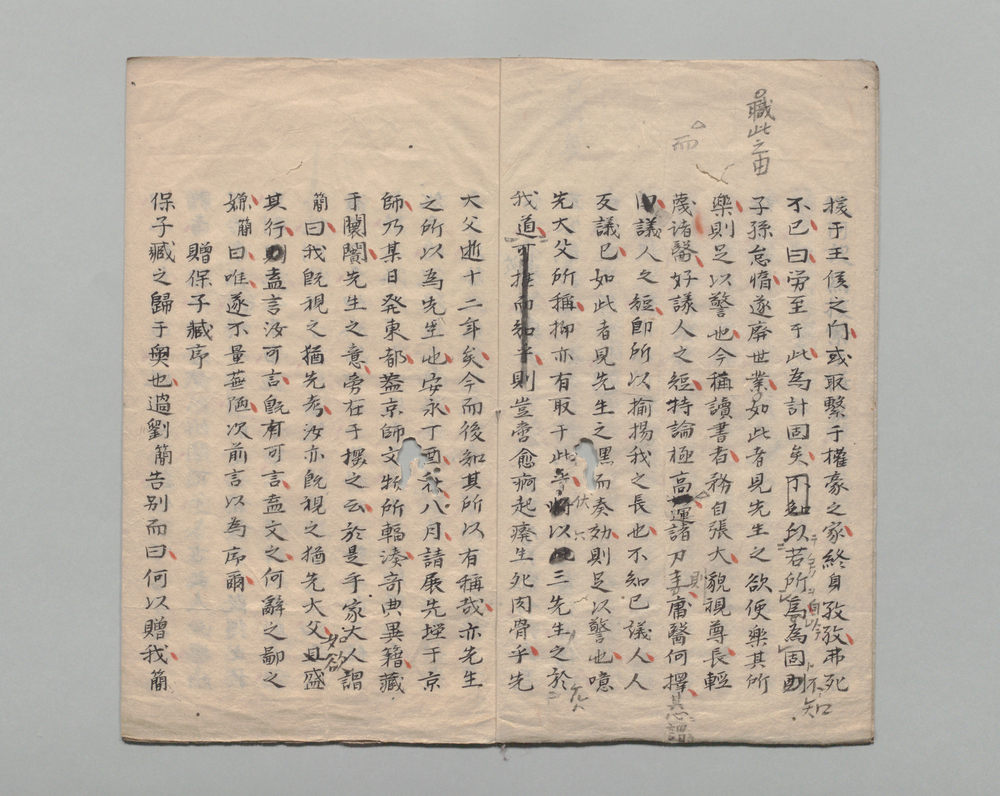 職此之由
援于王侯之門或取繫于權豪之家終身孜孜弗死
不已曰労至于此為計固矣不知以若所為為固則
不知
子孫怠惰遂廃世業如此者見先生之欲便樂其所
樂則足以警也今稱讀書者務自張大貌視尊長輕
而
蔑諸醫好議人之短特論極高運諸刀圭則庸醫何擇
議人之短即所以揄揚我之長也不知已議人人
反議已如此者見先生之黑而奏効則足以警也噫
先大父所稱抑亦有取于此乎將以三先生之於
我道可推而知乎則豈啻愈痾起癈生死肉骨乎先
大父逝十二年矣今而後知其所以有稱哉亦先生
之所以為先生也安永丁酉秋八月請展先塋于京
師乃某日発東都葢京師文物所輻湊奇典異籍藏
于闤闠先生之意旁在于摆之云於是乎家大人謂
簡曰我既視之猶先考汝亦既視之猶先大父且盛
其行盍言汝可言既有可言盍文之何辭之鄙之
嫌簡曰唯遂不量蕪陋次前言以為序爾
贈保子臧序
保子臧之歸于奧也過劉簡告别而曰何以贈我簡